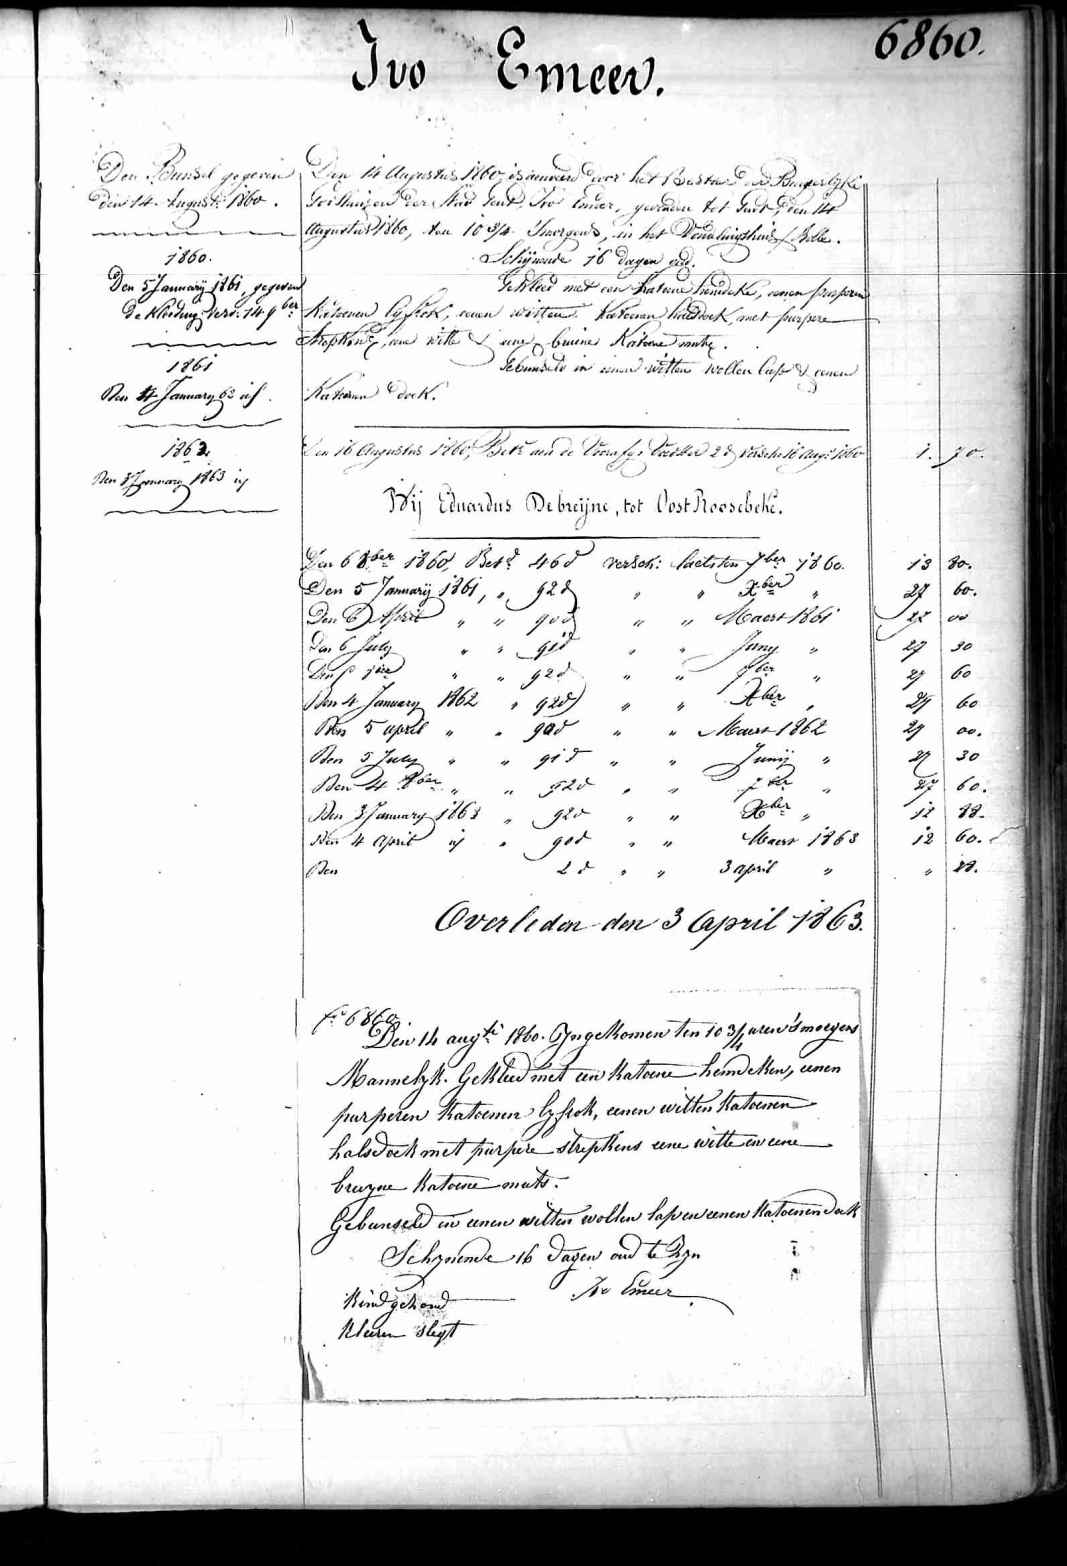 6860.
Ivo Emeer.
Den Bunsel gegeven
den 14 August 1860.
1860.
Den 5 January 1861, gegeven
de kleding verv. 14 9ber
1861
Den 4 January 62 id.
1862
Den 3 January 1863 id
Den 14 Augustus 1860 is aenveerd door het Bestuer der Burgerlyke
Godshuizen der Stad Gent, Ivo Emeer, gevonden tot Gent, den 14
Augustus 1860, ten 10 3/4 'smorgens, in het Vondelingshuis
Schijnende 16 dagen oud.
Gekleed met een katoene hemdeke, eenen purperen
katoenen lyfrok, eenen witten katoenen halsdoek, met purpere
strepkens, eene witte & eene bruine katoene muts.
Gebunseld in eenen witten wollen lap & eenen
katoenen doek.
Den 16 Augustus 1860, Bet. aen de Voorsz. 2 d versch. 16 aug. 1860 1. 70.
Wij Eduardus Debreijne, tot Oost Roosebeke.
Den 6 8ber 1860 Bet. 46 d versch: laetsten 7ber 1860. 13 80.
Den 5 Januarij 1861, " 92 d " " Xber " 27 60.
Den 6 April " " 90 d " " Maert 1861 27 00
Den 6 July " " 91 d " " Juny " 27 30
Den 92 d " " 7ber " 27 60
Den 4 January 1862 " 92 d " " Xber " 27 60
Den 5 april " " 90 d " " Maert 1862 27 00.
Den 5 July " " 91 d " " Junij " 27 30
Den 4 8ber " " 92 d " " 7ber " 27 60.
Den 3 January 1863 " 92 d " " Xber " 12 88.
Den 4 april id " 90 d " " Maert 1863 12 60.
Den 2 d " " 3 april " " 28.
Overleden den 3 April 1863.
6860
Den 14 augti 1860. Ingekomen ten 10 3/4 uren 'smorgens
Mannelyk. Gekleed met een katoene hemdeken, eenen
purperen katoenen lyfrok, eenen witten katoenen
halsdoek met purpere strepkens eene witte en eene
bruyne katoene muts.
Gebunseld in eenen witten wollen lap en eenen katoenen doek
Schynende 16 dagen oud te zyn
Kind gezond Ivo Emeer
Kleeren slegt